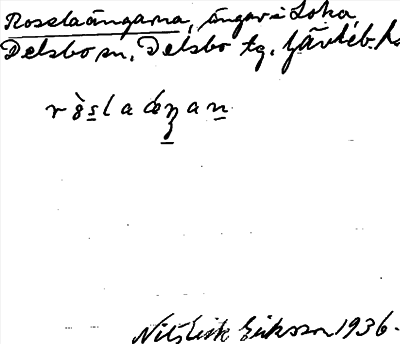 Rosslaängarna, ängar i Loka,
Delsbo sn, Delsbo tg, Gävleb. l.
Nils Erik Eriksson 1936.